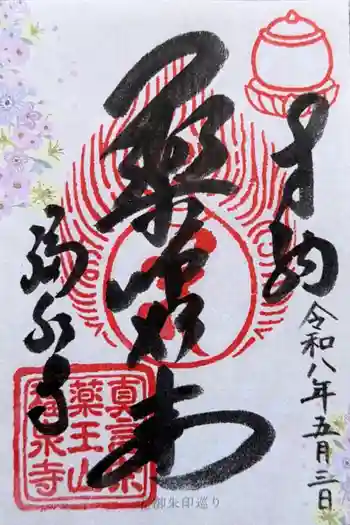 奉納
令和八年五月三日
薬師如来
福泉寺
真言宗
薬王山
福泉寺
御朱印巡り